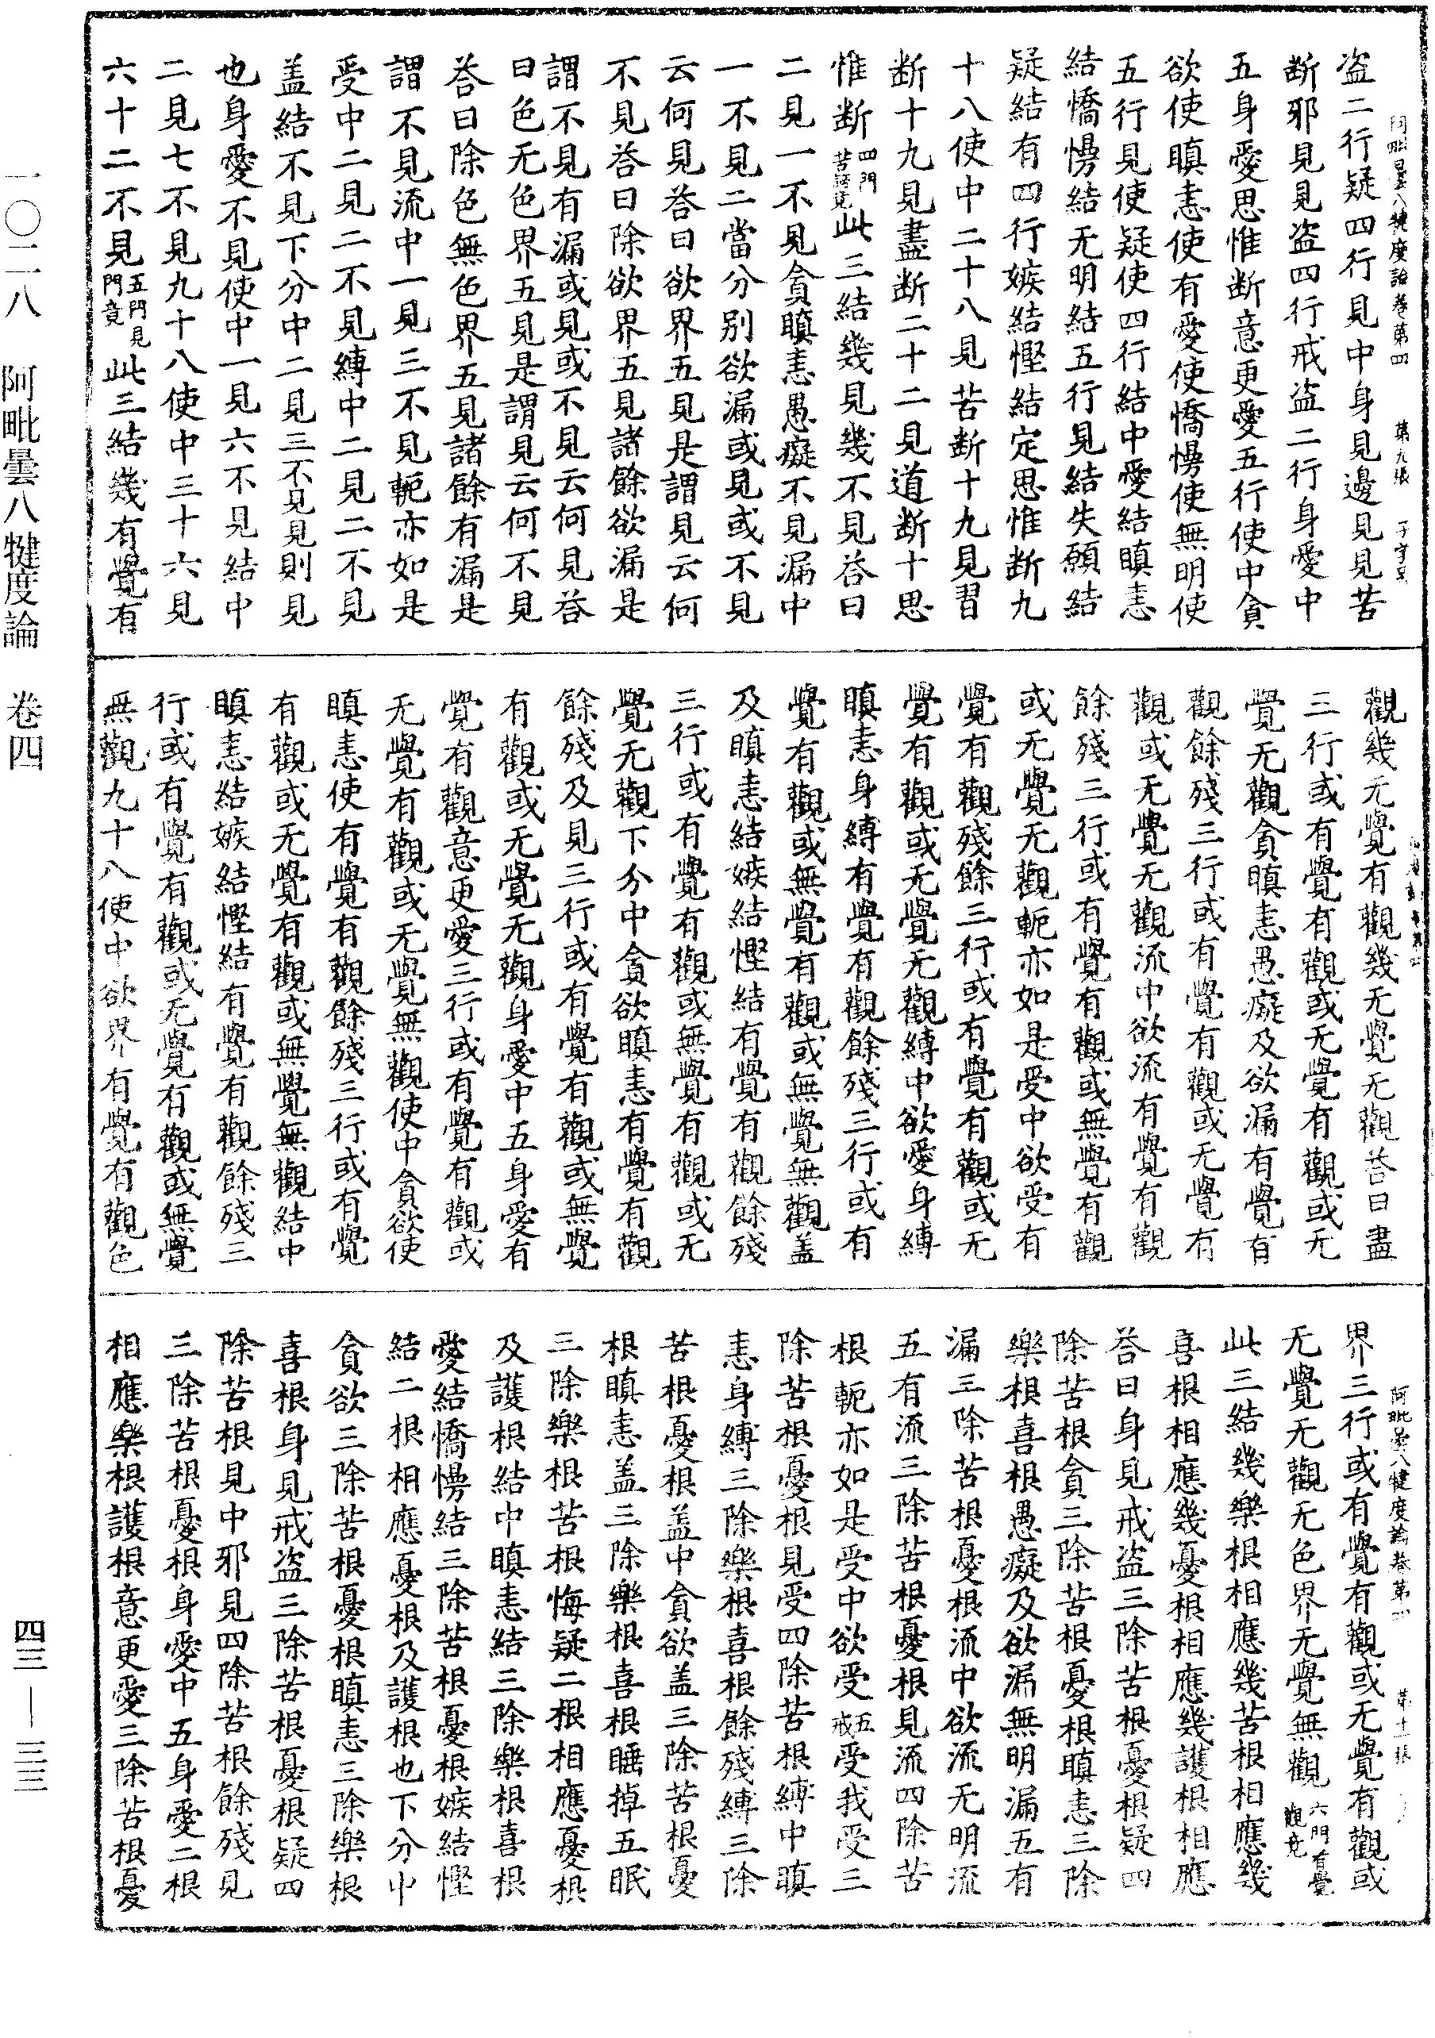 阿毗曇八犍度論卷第四 第九張
盗二行疑四行見中身見邊見見苦
断邪見見盗四行戒盗二行身愛中
五身愛思惟断意更愛五行使中貪
欲使瞋恚使有愛使憍慢使無明使
五行見使疑使四行結中愛結瞋恚
結憍慢結无明結五行見結失願結
疑結有四行嫉結慳結定思惟断九
十八使中二十八見苦断十九見習
断十九見盡断二十二見道断十思
惟断四門苦諦竟此三結幾見幾不見荅曰
二見一不見貪瞋恚愚癡不見漏中
一不見二當分別欲漏或見或不見
云何見荅曰欲界五見是謂見云何
不見荅曰除欲界五見諸餘欲漏是
謂不見有漏或見或不見云何見荅
曰色无色界五見是謂見云何不見
荅曰除色無色界五見諸餘有漏是
謂不見流中一見三不見軛亦如是
受中二見二不見縛中二見二不見
盖結不見下分中二見三不見見則見
也身愛不見使中一見六不見結中
二見七不見九十八使中三十六見
六十二不見五門見門竟此三結幾有覺有
觀幾无覺有觀幾无覺无觀荅曰盡
三行或有覺有觀或无覺有觀或无
覺无觀貪瞋恚愚癡及欲漏有覺有
觀餘殘三行或有覺有觀或无覺有
觀或无覺无觀流中欲流有覺有觀
餘殘三行或有覺有觀或無覺有觀
或无覺无觀軛亦如是受中欲受有
覺有觀殘餘三行或有覺有觀或无
覺有觀或无覺无觀縛中欲愛身縛
瞋恚身縛有覺有觀餘殘三行或有
覺有觀或無覺有觀或無覺無觀盖
及瞋恚結嫉結慳結有覺有觀餘殘
三行或有覺有觀或無覺有觀或无
覺无觀下分中貪欲瞋恚有覺有觀
餘殘及見三行或有覺有觀或無覺
有觀或无覺无觀身愛中五身愛有
覺有觀意更愛三行或有覺有觀或
无覺有觀或无覺無觀使中貪欲使
瞋恚使有覺有觀餘殘三行或有覺
有觀或无覺有觀或無覺無觀結中
瞋恚結嫉結慳結有覺有觀餘殘三
行或有覺有觀或无覺有觀或無覺
無觀九十八使中欲界有覺有觀色
阿毗曇八犍度論卷第四 第十一張
界三行或有覺有觀或无覺有觀或
无覺无觀无色界无覺無觀六門有覺觀竟
此三結幾樂根相應幾苦根相應幾
喜根相應幾憂根相應幾護根相應
荅曰身見戒盗三除苦根憂根疑四
除苦根貪三除苦根憂根瞋恚三除
樂根喜根愚癡及欲漏無明漏五有
漏三除苦根憂根流中欲流无明流
五有流三除苦根憂根見流四除苦
根軛亦如是受中欲受五戒受我受三
除苦根憂根見受四除苦根縛中瞋
恚身縛三除樂根喜根餘殘縛三除
苦根憂根盖中貪欲盖三除苦根憂
根瞋恚盖三除樂根喜根睡掉五眠
三除樂根苦根悔疑二根相應憂根
及護根結中瞋恚結三除樂根喜根
愛結憍慢結三除苦根憂根嫉結慳
結二根相應憂根及護根也下分中
貪欲三除苦根憂根瞋恚三除樂根
喜根身見戒盗三除苦根憂根疑四
除苦根見中邪見四除苦根餘殘見
三除苦根憂根身愛中五身愛二根
相應樂根護根意更愛三除苦根憂
一〇二八 阿毗曇八犍度論 卷四 四三—三三